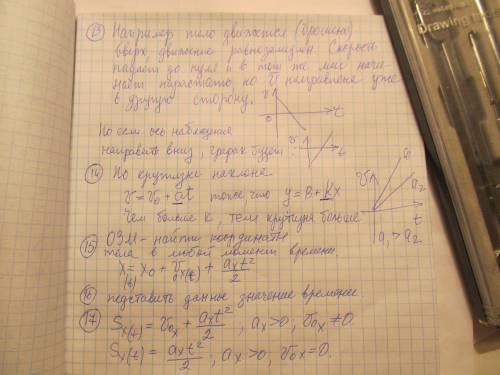 13 Например тело движется (брошено)
вверх, движение равнозамедл. Скорость
падает до нуля и в тот же миг начи-
нает нарастать, но v направлена уже
в другую сторону.
v
0
t
Но если ось наблюдения
направить вниз, график будет:
v
t
14 По крутизне наклона
v = v0 + at тоже что y = B + kx
Чем больше k, тем крутизна больше
v
a1
a2
t
a1 > a2
15 ОЗМ - найти координаты
тела в любой момент времени.
x(t) = x0 + v0x(t) + axt²/2
16 подставить данные значение времени.
17 Sx(t) = v0x + axt²/2, ax>0, v0x≠0
Sx(t) = axt²/2, ax>0, v0x=0.
Drawing